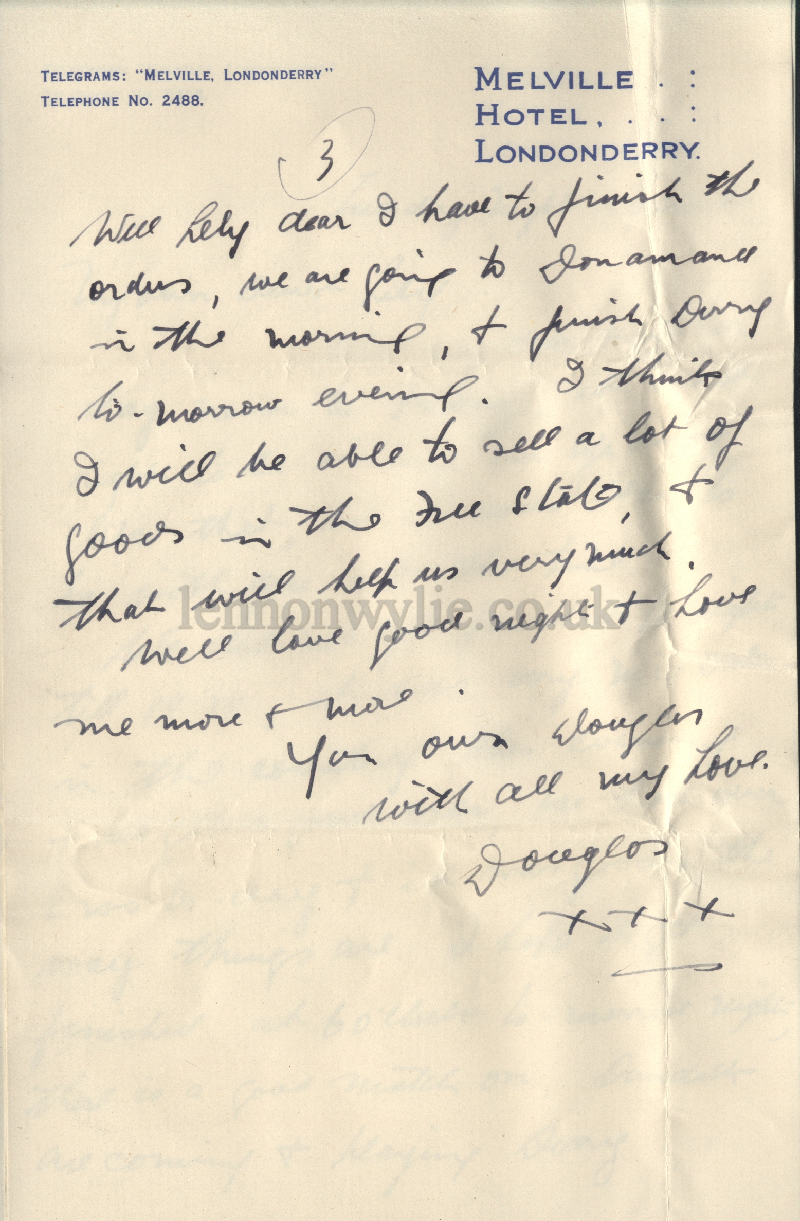 TELEGRAMS: "MELVILLE, LONDONDERRY"
TELEPHONE No. 2488.
MELVILLE . :
HOTEL, . . . :
LONDONDERRY.
3
Well dear I have to finish the
orders, we are going to
in the morning, & finish Derry
to-morrow evening. I think
I will be able to sell a lot of
goods in the Free State, &
that will help us very much.
lennonwylie.co.uk
well love good night & love
me more & more.
Your own Douglas
with all my love.
Douglas
x x x